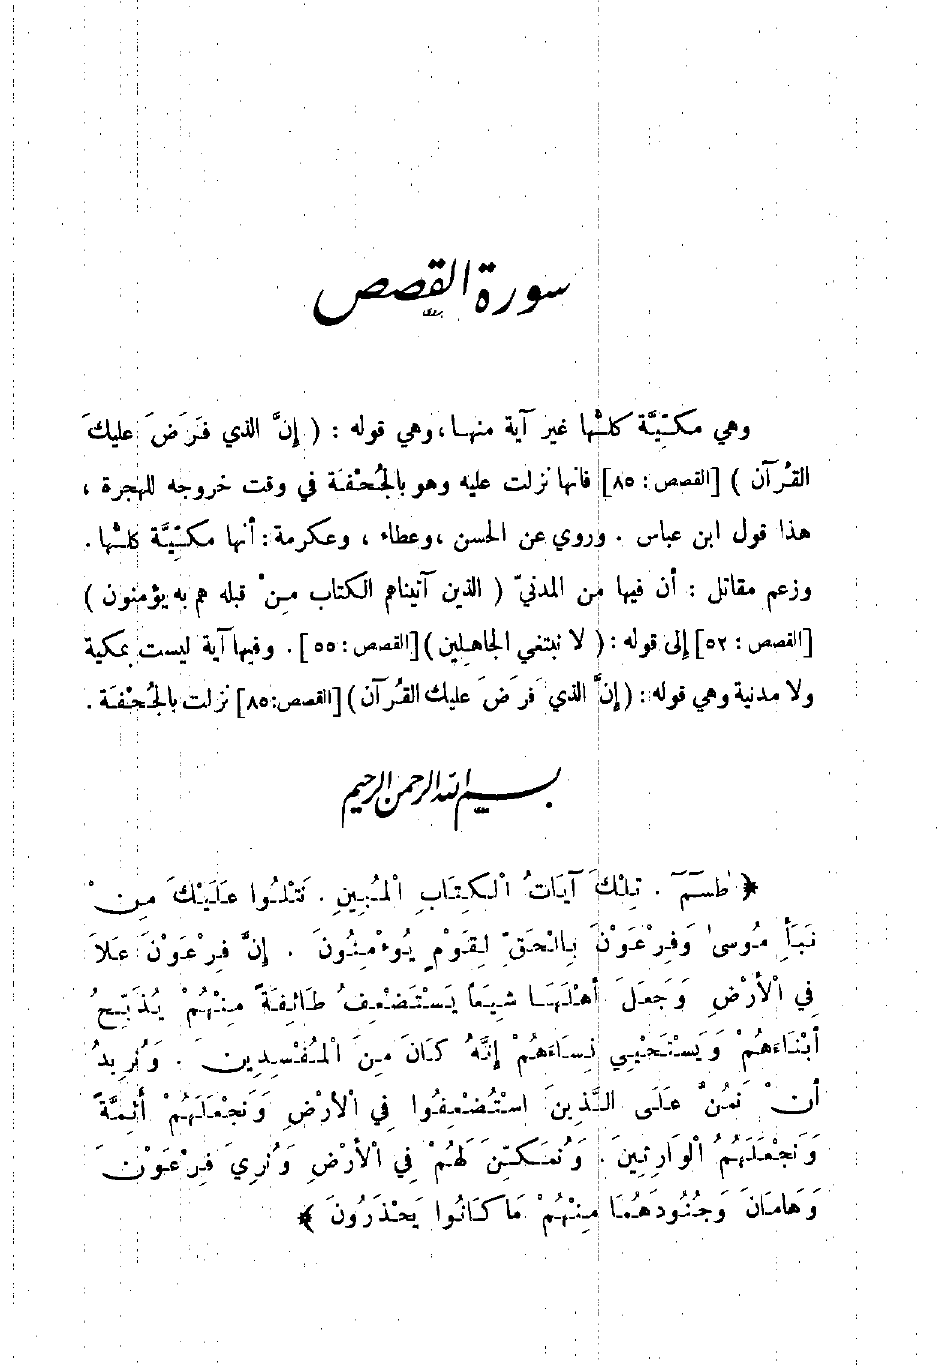 سورة القصص
وهي مكّيّة كلّها غير آية منها، وهي قوله : ( إنَّ الذي فَرَضَ عليكَ
القُرآن ) [القصص : ٨٥] فانها نزلت عليه وهو بالجُحْفَة في وقت خروجه للهجرة ،
هذا قول ابن عباس . وروي عن الحسن ، وعطاء ، وعكرمة : أنها مكّيّة كلّها .
وزعم مقاتل : أن فيها من المدنيّ ( الذين آتيناهم الكتاب مِنْ قبله هم به يؤمنون )
[القصص : ٥٢] إلى قوله : ( لا نبتغي الجاهلين ) [القصص : ٥٥] . وفيها آية ليست بمكية
ولا مدنية وهي قوله : ( إنَّ الذي فَرَضَ عليك القُرآن ) [القصص:٨٥] نزلت بالجُحْفَة .
بسم الله الرحمن الرحيم
﴿ طٰسٓمٓ . تِلْكَ آيَاتُ الْكِتَابِ الْمُبِينِ . نَتْلُوا عَلَيْكَ مِنْ
نَبَأِ مُوسىٰ وَفِرْعَوْنَ بِالْحَقِّ لِقَوْمٍ يُؤْمِنُونَ . إنَّ فِرْعَوْنَ عَلَا
فِي الْأَرْضِ وَجَعَلَ أَهْلَهَا شِيَعاً يَسْتَضْعِفُ طَائِفَةً مِنْهُمْ يُذَبِّحُ
أَبْنَاءَهُمْ وَيَسْتَحْيِي نِسَاءَهُمْ إِنَّهُ كَانَ مِنَ الْمُفْسِدِينَ . وَنُرِيدُ
أَنْ نَمُنَّ عَلَى الَّذِينَ اسْتُضْعِفُوا فِي الْأَرْضِ وَنَجْعَلَهُمْ أَئِمَّةً
وَنَجْعَلَهُمُ الْوَارِثِينَ . وَنُمَكِّنَ لَهُمْ فِي الْأَرْضِ وَنُرِيَ فِرْعَوْنَ
وَهَامَانَ وَجُنُودَهُمَا مِنْهُمْ مَا كَانُوا يَحْذَرُونَ ﴾